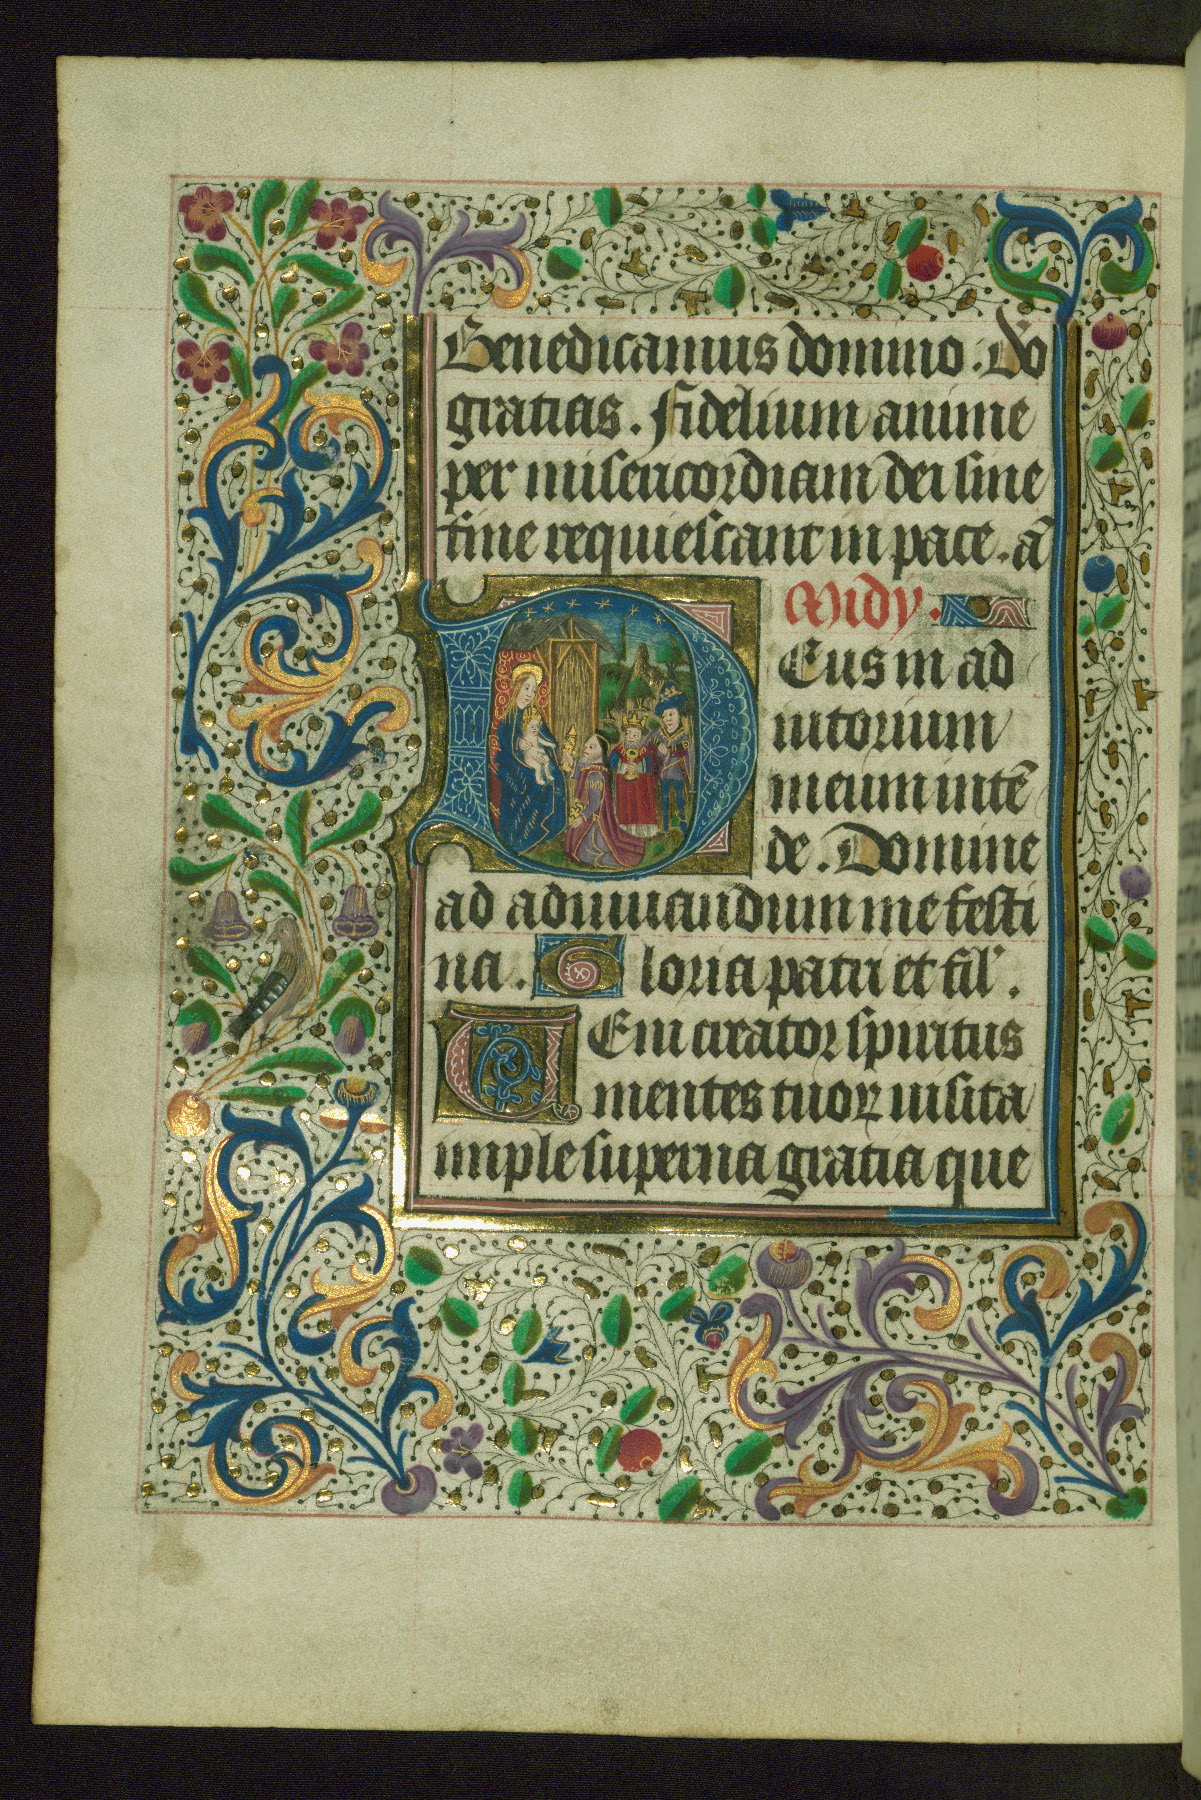 Benedicamus domino. Do
gratias. Fidelium anime
per misericordiam dei sine
fine requiescant in pace. ã
Midy.
Deus in ad
iutorium
meum intẽ
de. Domine
ad adiuuandum me festi
na. Gloria patri et fil'.
Ueni creator spiritus
mentes tuoꝝ uisita
imple superna gratia que